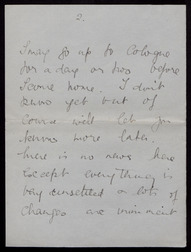 2.
I may go up to Cologne
for a day or two before
I come home. I don't
know yet but of
course will let you
know more later.
There is no news here
except everything is
very unsettled & lots of
changes are imminent